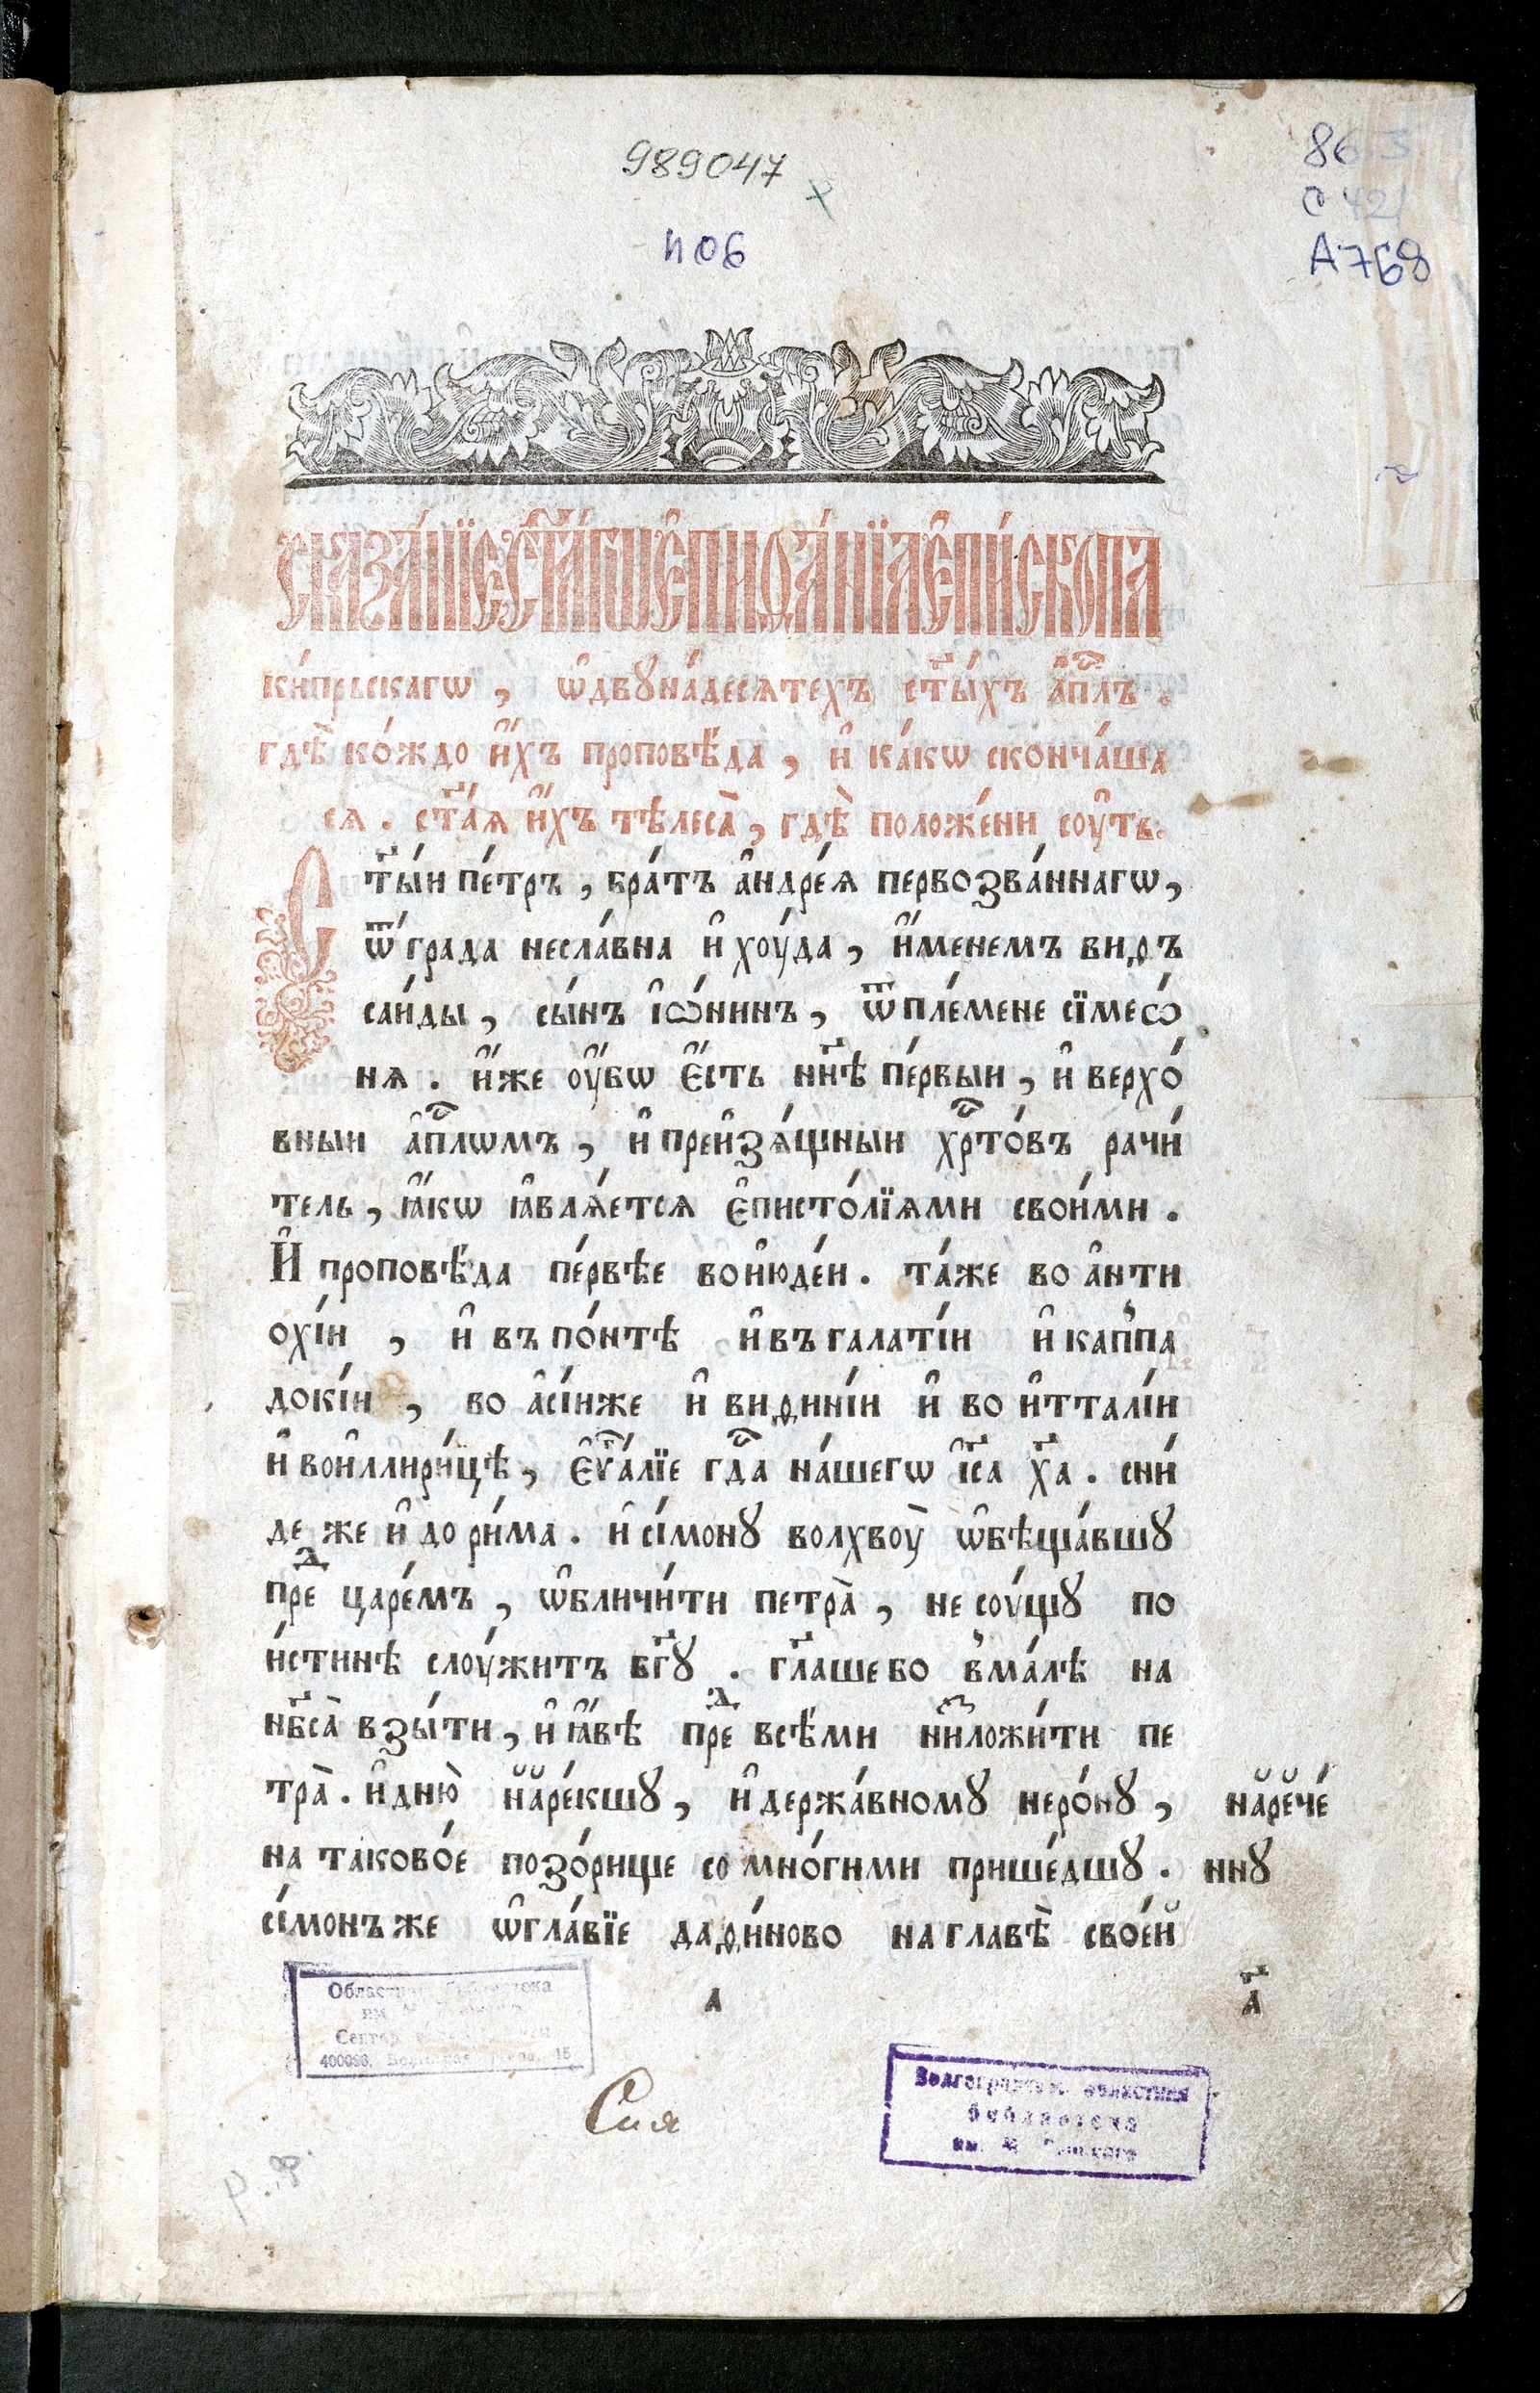 989047
406
86.3
С 421
А768
СКАЗА́НЇЕ СТ҃А́ГѠ Е҆ПИФА́НЇА Е҆ПИ́СКОПА
ки́прьскагѡ, ѡ҆двꙋна́десятехъ ст҃ы́хъ а҆пⷭ҇лъ.
гдѣ̀ ко́ждо и҆́хъ проповѣ́да, и҆ ка́кѡ сконча́ша
ся. ст҃а́я и҆́хъ тѣлеса̀, гдѣ̀ положе́ни соу́ть.
Ст҃ы́и пе́тръ, бра́тъ а҆ндре́я первозва́ннагѡ,
ѿ гра́да несла́вна и҆ хоу́да, и҆́менемъ виѳъ
саи́ды, сы́нъ і҆ѡ́нинъ, ѿпле́мене сїмеѡ́
ня. и҆́же оу҆́бѡ є҆́сть нн҃ѣ пе́рвыи, и҆ верхо́
вныи а҆пⷭ҇лѡмъ, и҆ преи҆зя́щныи хрⷭ҇то́въ рачи́
тель, ꙗ҆́кѡ ꙗ҆вля́ется є҆писто́лїями свои́ми.
И҆ проповѣ́да пе́рвѣе вои҆юде́и. та́же во а҆нти
охі́и, и҆ въ по́нтѣ и҆ въ галаті́и и҆ каппа
докі́и, во а҆сі́иже и҆ виѳині́и и҆ во и҆тталі́и
и҆ вои҆ллири́цѣ, є҆ѵⷢ҇а́лїе гдⷭ҇а на́шегѡ і҆с҃а х҃а. сни́
де же и҆ до ри́ма. и҆ сі́монꙋ волхвоу̀ ѡ҆бѣща́вшꙋ
преⷣ царе́мъ, ѡ҆бличи́ти петра̀, не соу́щꙋ по
и́стинѣ слоу́житъ бг҃ꙋ. гл҃аше бо вма́лѣ на
нб҃са̀ взы́ти, и҆ ꙗ҆́вѣ преⷣ всѣ́ми ниⷥложи́ти пе
тра̀. и҆ дню̀ наре́кшꙋ, и҆ держа́вномꙋ неро́нꙋ, нарече́
на таково́е позо́рище со мно́гими прише́дшꙋ. ннꙋ
сі́монъ же ѡ҆гла́вїе даѳи́ново на главѣ̀ свое́й
а
а҃
Волгоградская областная
библиотека
им. М. Горького
Сия